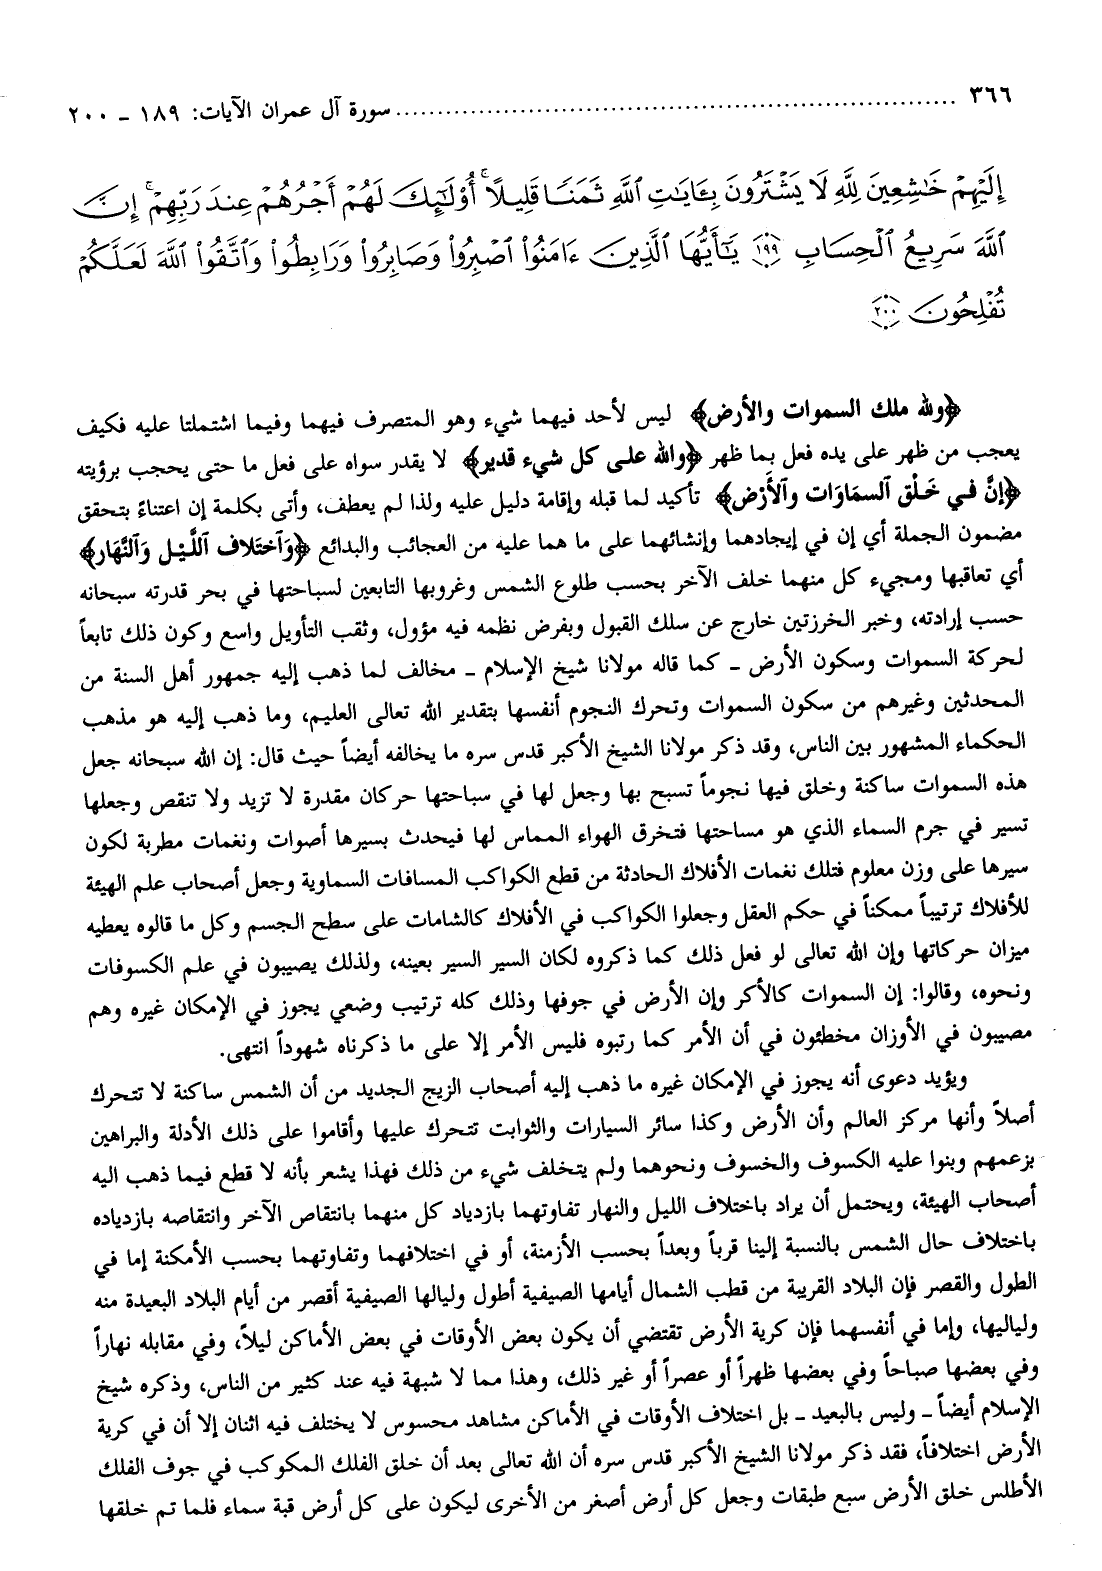 ٣٦٦ ........ سورة آل عمران الآيات: ١٨٩ ـ ٢٠٠
إِلَيْهِمْ خَٰشِعِينَ لِلَّهِ لَا يَشْتَرُونَ بِـَٔايَٰتِ ٱللَّهِ ثَمَنًا قَلِيلًا ۗ أُوْلَٰٓئِكَ لَهُمْ أَجْرُهُمْ عِندَ رَبِّهِمْ ۗ إِنَّ
ٱللَّهَ سَرِيعُ ٱلْحِسَابِ ١٩٩ يَٰٓأَيُّهَا ٱلَّذِينَ ءَامَنُوا۟ ٱصْبِرُوا۟ وَصَابِرُوا۟ وَرَابِطُوا۟ وَٱتَّقُوا۟ ٱللَّهَ لَعَلَّكُمْ
تُفْلِحُونَ ٢٠٠
﴿ولله ملك السموات والأرض﴾ ليس لأحد فيهما شيء وهو المتصرف فيهما وفيما اشتملتا عليه فكيف
يعجب من ظهر على يده فعل بما ظهر ﴿والله على كل شيء قدير﴾ لا يقدر سواه على فعل ما حتى يحجب برؤيته
﴿إنَّ في خَلْق ٱلسمَاوَات وٱلأَرْض﴾ تأكيد لما قبله وإقامة دليل عليه ولذا لم يعطف، وأتى بكلمة إن اعتناءً بتحقق
مضمون الجملة أي إن في إيجادهما وإنشائهما على ما هما عليه من العجائب والبدائع ﴿وَٱختَلاف ٱللَّيْل وَٱلنَّهَار﴾
أي تعاقبها ومجيء كل منهما خلف الآخر بحسب طلوع الشمس وغروبها التابعين لسباحتها في بحر قدرته سبحانه
حسب إرادته، وخبر الخرزتين خارج عن سلك القبول وبفرض نظمه فيه مؤول، وثقب التأويل واسع وكون ذلك تابعاً
لحركة السموات وسكون الأرض ـ كما قاله مولانا شيخ الإسلام ـ مخالف لما ذهب إليه جمهور أهل السنة من
المحدثين وغيرهم من سكون السموات وتحرك النجوم أنفسها بتقدير الله تعالى العليم، وما ذهب إليه هو مذهب
الحكماء المشهور بين الناس، وقد ذكر مولانا الشيخ الأكبر قدس سره ما يخالفه أيضاً حيث قال: إن الله سبحانه جعل
هذه السموات ساكنة وخلق فيها نجوماً تسبح بها وجعل لها في سباحتها حركان مقدرة لا تزيد ولا تنقص وجعلها
تسير في جرم السماء الذي هو مساحتها فتخرق الهواء المماس لها فيحدث بسيرها أصوات ونغمات مطربة لكون
سيرها على وزن معلوم فتلك نغمات الأفلاك الحادثة من قطع الكواكب المسافات السماوية وجعل أصحاب علم الهيئة
للأفلاك ترتيباً ممكناً في حكم العقل وجعلوا الكواكب في الأفلاك كالشامات على سطح الجسم وكل ما قالوه يعطيه
ميزان حركاتها وإن الله تعالى لو فعل ذلك كما ذكروه لكان السير السير بعينه، ولذلك يصيبون في علم الكسوفات
ونحوه، وقالوا: إن السموات كالأكر وإن الأرض في جوفها وذلك كله ترتيب وضعي يجوز في الإمكان غيره وهم
مصيبون في الأوزان مخطئون في أن الأمر كما رتبوه فليس الأمر إلا على ما ذكرناه شهوداً انتهى.
ويؤيد دعوى أنه يجوز في الإمكان غيره ما ذهب إليه أصحاب الزيج الجديد من أن الشمس ساكنة لا تتحرك
أصلاً وأنها مركز العالم وأن الأرض وكذا سائر السيارات والثوابت تتحرك عليها وأقاموا على ذلك الأدلة والبراهين
بزعمهم وبنوا عليه الكسوف والخسوف ونحوهما ولم يتخلف شيء من ذلك فهذا يشعر بأنه لا قطع فيما ذهب اليه
أصحاب الهيئة، ويحتمل أن يراد باختلاف الليل والنهار تفاوتهما بازدياد كل منهما بانتقاص الآخر وانتقاصه بازدياده
باختلاف حال الشمس بالنسبة إلينا قرباً وبعداً بحسب الأزمنة، أو في اختلافهما وتفاوتهما بحسب الأمكنة إما في
الطول والقصر فإن البلاد القريبة من قطب الشمال أيامها الصيفية أطول ولياليها الصيفية أقصر من أيام البلاد البعيدة منه
ولياليها، وإما في أنفسهما فإن كرية الأرض تقتضي أن يكون بعض الأوقات في بعض الأماكن ليلاً، وفي مقابله نهاراً
وفي بعضها صباحاً وفي بعضها ظهراً أو عصراً أو غير ذلك، وهذا مما لا شبهة فيه عند كثير من الناس، وذكره شيخ
الإسلام أيضاً ـ وليس بالبعيد ـ بل اختلاف الأوقات في الأماكن مشاهد محسوس لا يختلف فيه اثنان إلا أن في كرية
الأرض اختلافاً، فقد ذكر مولانا الشيخ الأكبر قدس سره أن الله تعالى بعد أن خلق الفلك المكوكب في جوف الفلك
الأطلس خلق الأرض سبع طبقات وجعل كل أرض أصغر من الأخرى ليكون على كل أرض قبة سماء فلما تم خلقها